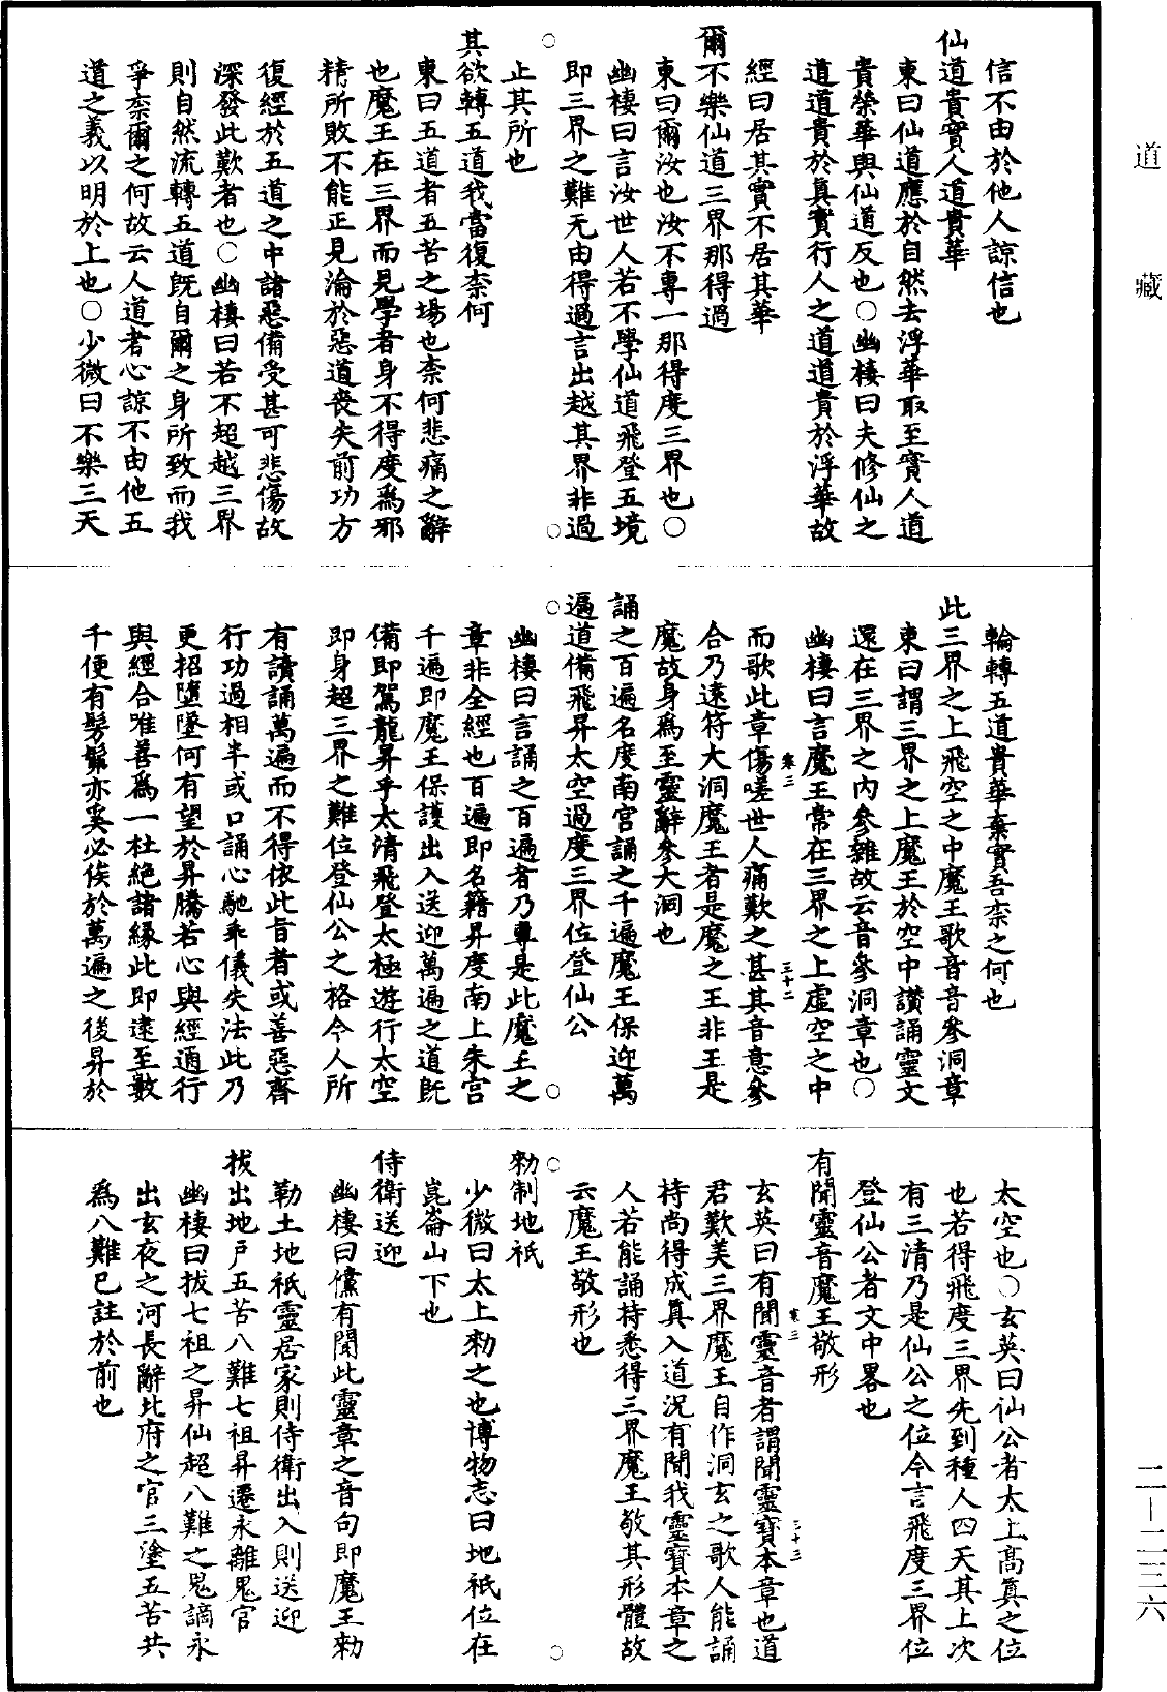 道藏
信不由於他人諒信也
仙道貴實人道貴華
東曰仙道應於自然去浮華取至實人道
貴榮華與仙道反也〇幽棲曰夫修仙之
道道貴於真實行人之道道貴於浮華故
經曰居其實不居其華
爾不樂仙道三界那得過
東曰爾汝也汝不專一那得度三界也〇
幽棲曰言汝世人若不學仙道飛登五境
即三界之難无由得過言出越其界非過
止其所也
其欲轉五道我當復柰何
東曰五道者五苦之場也柰何悲痛之辭
也魔王在三界而見學者身不得度爲邪
精所敗不能正見淪於惡道喪失前功方
復經於五道之中諸惡備受甚可悲傷故
深發此歎者也〇幽棲曰若不超越三界
則自然流轉五道旣自爾之身所致而我
爭柰爾之何故云人道者心諒不由他五
道之義以明於上也〇少微曰不樂三天
輪轉五道貴華棄實吾柰之何也
此三界之上飛空之中魔王歌音音參洞章
東曰謂三界之上魔王於空中讚誦靈文
還在三界之內參雜故云音參洞章也〇
幽棲曰言魔王常在三界之上虛空之中
卷三
三十二
而歌此章傷嗟世人痛歎之甚其音意參
合乃遠符大洞魔王者是魔之王非王是
魔故身爲至靈辭參大洞也
誦之百遍名度南宮誦之千遍魔王保迎萬
遍道備飛昇太空過度三界位登仙公
幽棲曰言誦之百遍者乃專是此魔王之
章非全經也百遍即名籍昇度南上朱宮
千遍即魔王保護出入送迎萬遍之道旣
備即駕龍昇乎太清飛登太極遊行太空
即身超三界之難位登仙公之格今人所
有讀誦萬遍而不得依此旨者或善惡齊
行功過相半或口誦心馳乖儀失法此乃
更招墮墜何有望於昇騰若心與經通行
與經合唯善爲一杜絕諸緣此即遠至數
千便有髣髴亦奚必俟於萬遍之後昇於
太空也〇玄英曰仙公者太上高真之位
也若得飛度三界先到種人四天其上次
有三清乃是仙公之位今言飛度三界位
登仙公者文中畧也
有聞靈音魔王敬形
卷三
三十三
玄英曰有聞靈音者謂聞靈寶本章也道
君歎美三界魔王自作洞玄之歌人能誦
持尚得成真入道況有聞我靈寶本章之
人若能誦持悉得三界魔王敬其形體故
云魔王敬形也
勑制地祇
少微曰太上勑之也博物志曰地祇位在
崑崙山下也
侍衛送迎
幽棲曰儻有聞此靈章之音句即魔王勑
勒土地祇靈居家則侍衛出入則送迎
拔出地戶五苦八難七祖昇遷永離鬼官
幽棲曰拔七祖之昇仙超八難之鬼謫永
出玄夜之河長辭北府之官三塗五苦共
爲八難已註於前也
二—二三六